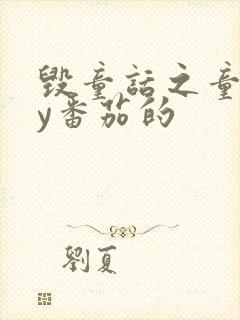 毁童话之童
y番茄的
劉夏